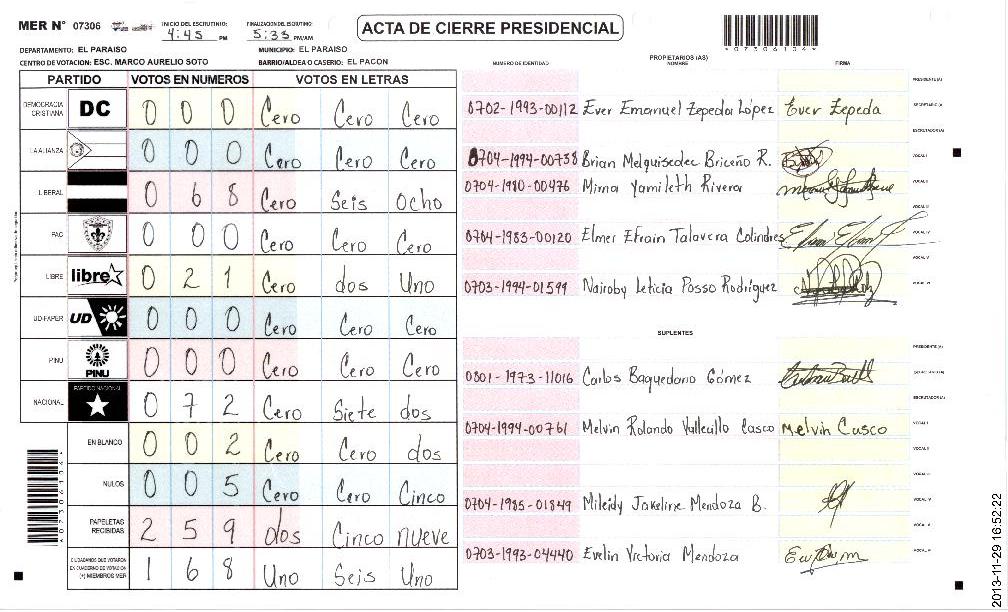 MER N° 07306
INICIO DEL ESCRUTINIO: 4:45 PM
FINALIZACION DEL ESCRUTINIO: 5:33 PM/AM
ACTA DE CIERRE PRESIDENCIAL
DEPARTAMENTO: EL PARAISO
MUNICIPIO: EL PARAISO
CENTRO DE VOTACION: ESC. MARCO AURELIO SOTO
BARRIO/ALDEA O CASERIO: EL PACON
PARTIDO VOTOS EN NUMEROS VOTOS EN LETRAS
DEMOCRACIA CRISTIANA DC 0 0 0 Cero Cero Cero
LA ALIANZA 0 0 0 Cero Cero Cero
LIBERAL 0 6 8 Cero Seis Ocho
FAC 0 0 0 Cero Cero Cero
LIBRE libre 0 2 1 Cero dos Uno
UD-FAPER UD 0 0 0 Cero Cero Cero
PINU PINU 0 0 0 Cero Cero Cero
NACIONAL PARTIDO NACIONAL 0 7 2 Cero Siete dos
EN BLANCO 0 0 2 Cero Cero dos
NULOS 0 0 5 Cero Cero Cinco
PAPELETAS RECIBIDAS 2 5 9 dos Cinco nueve
CIUDADANOS QUE VOTARON EN CUADERNO DE VOTACION (+) MIEMBROS MER 1 6 8 Uno Seis Uno
07306104
PROPIETARIOS (AS)
NUMERO DE IDENTIDAD NOMBRE FIRMA
PRESIDENTE (A)
0702-1993-00112 Ever Emanuel Zepeda López Ever Zepeda SECRETARIO (A)
ESCRUTADOR (A)
0704-1994-00738 Brian Melquisedec Briceño R. VOCAL I
0704-1980-00476 Mirna Yamileth Rivera VOCAL II
VOCAL III
0704-1983-00120 Elmer Efrain Talavera Colindres VOCAL IV
VOCAL V
0703-1994-01599 Nairoby Leticia Posso Rodríguez VOCAL VI
SUPLENTES
PRESIDENTE (A)
0801-1973-11016 Carlos Baquedano Gómez SECRETARIO (A)
ESCRUTADOR (A)
0704-1994-00761 Melvin Rolando Vallecillo Casco Melvin Casco VOCAL I
VOCAL II
VOCAL III
0704-1985-01849 Mileidy Jakeline Mendoza B. VOCAL IV
VOCAL V
0703-1993-04440 Evelin Victoria Mendoza VOCAL VI
2013-11-29 16:52:22